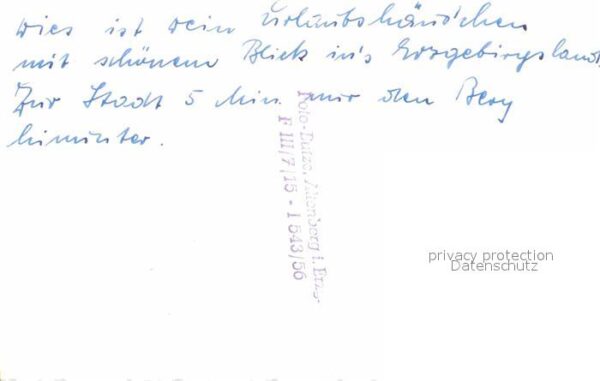 Dies ist mein Urlaubshäuschen
mit schönem Blick in's Erzgebirgsland,
Zur Stadt 5 Min. nur den Berg
hinunter.
Foto-Butze, Altenberg i. Erzg.
F III/7/15 - I 543/56
privacy protection
Datenschutz